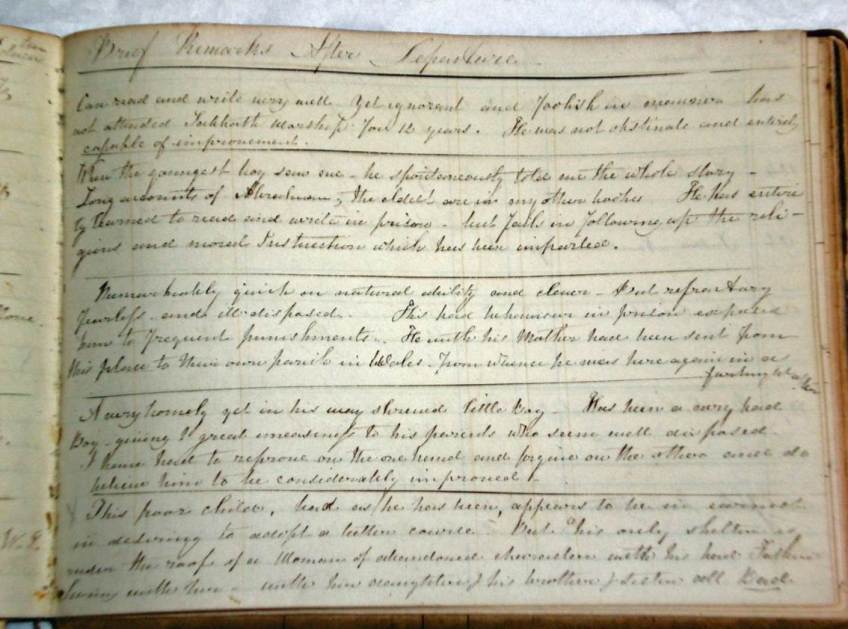 Brief Remarks After Departure
Can read and write very well. Yet ignorant and foolish in manners has
not attended Sabbath Worship for 12 years. He was not obstinate and entirely
capable of improvement.
When the youngest boy saw me - he spontaneously told me the whole story -
Long accounts of Abraham, the eldest are in my other books He has entire
ly learned to read and write in prison - but fails in following up the reli -
gious and moral Instruction which has been imparted.
Remarkably quick in natural ability and clever - but refractory
fearless and ill disposed. His bad behaviour in prison exposed
him to frequent punishments. He with his Mother had been sent from
this place to their own parish in Wales - from whence he was here again in a
fortnight after
A very homely yet in his way shrewd little boy - Has been a very bad
Boy - giving great uneasiness to his parents who seem well disposed
I have had to reprove on the one hand and forgive on the other and do
believe him to be considerably improved.
This poor child, bad as he has been, appears to be in earnest
in desiring to adopt a better course But his only shelter is
under the roof of a Woman of abandoned character with his bad Father
living with her - with her daughter & his brother & sister all Bad.
W.